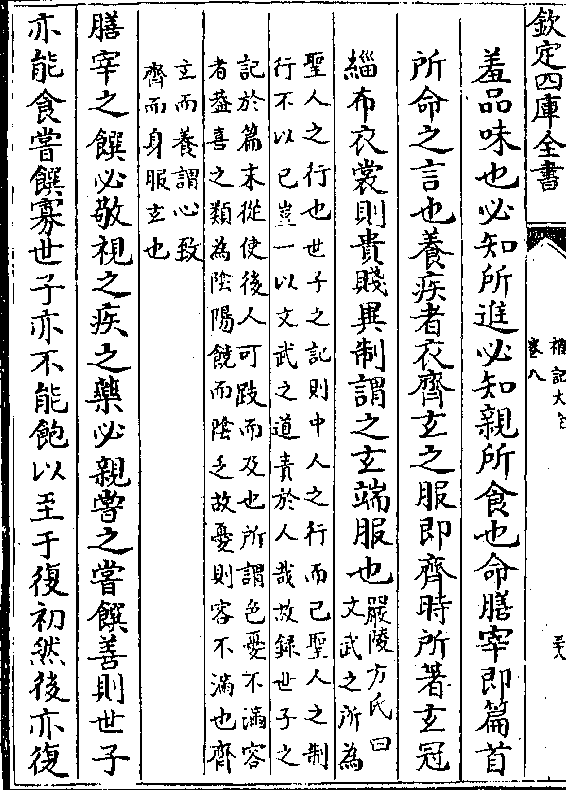 欽定四庫全書
禮記大全
卷八
羞品味也必知所進必知親所食也命膳宰即篇首
所命之言也養疾者衣齊玄之服即齊時所著玄冠
緇布衣裳則貴賤異制謂之玄端服也
嚴陵方氏曰
文武之所為
聖人之行也世子之記則中人之行而已聖人之制
行不以已豈一以文武之道責於人哉故録世子之
記於篇末從使後人可跂而及也所謂色憂不滿容
者葢喜之類為陰陽饒而陰乏故憂則容不滿也齊
玄而養謂心致
齊而身服玄也
膳宰之饌必敬視之疾之藥必親嘗之嘗饌善則世子
亦能食嘗饌寡世子亦不能飽以至于復初然後亦復